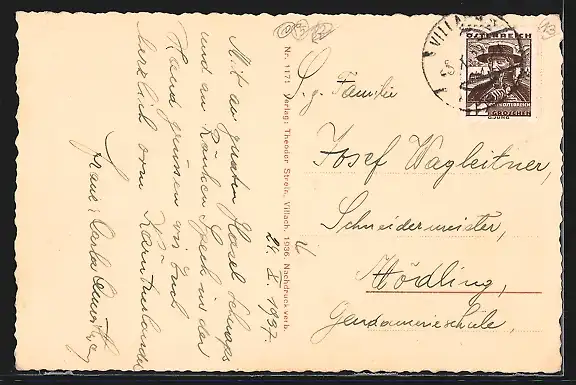 Mit an guaten Glasel Schnaps
und an Ranken Speck in der
Hand grüssen wir Euch
herzlich vom Kärntnerlandl
24. X. 1937.
Nr. 1171 Verlag: Theodor Strein, Villach, 1936. Nachdruck verb.
VILLACH
ÖSTERREICH
GROSCHEN
S. g. Familie
Josef Wagleitner,
Schneidermeister,
Mödling,
Gendarmerieschule,